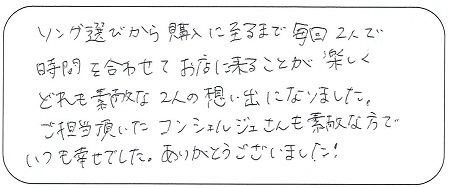 リング選びから購入に至るまで毎回2人で
時間を合わせてお店に来ることが楽しく
どれも素敵な2人の想い出になりました。
ご担当頂いたコンシェルジュさんも素敵な方で
いつも幸せでした。ありがとうございました!